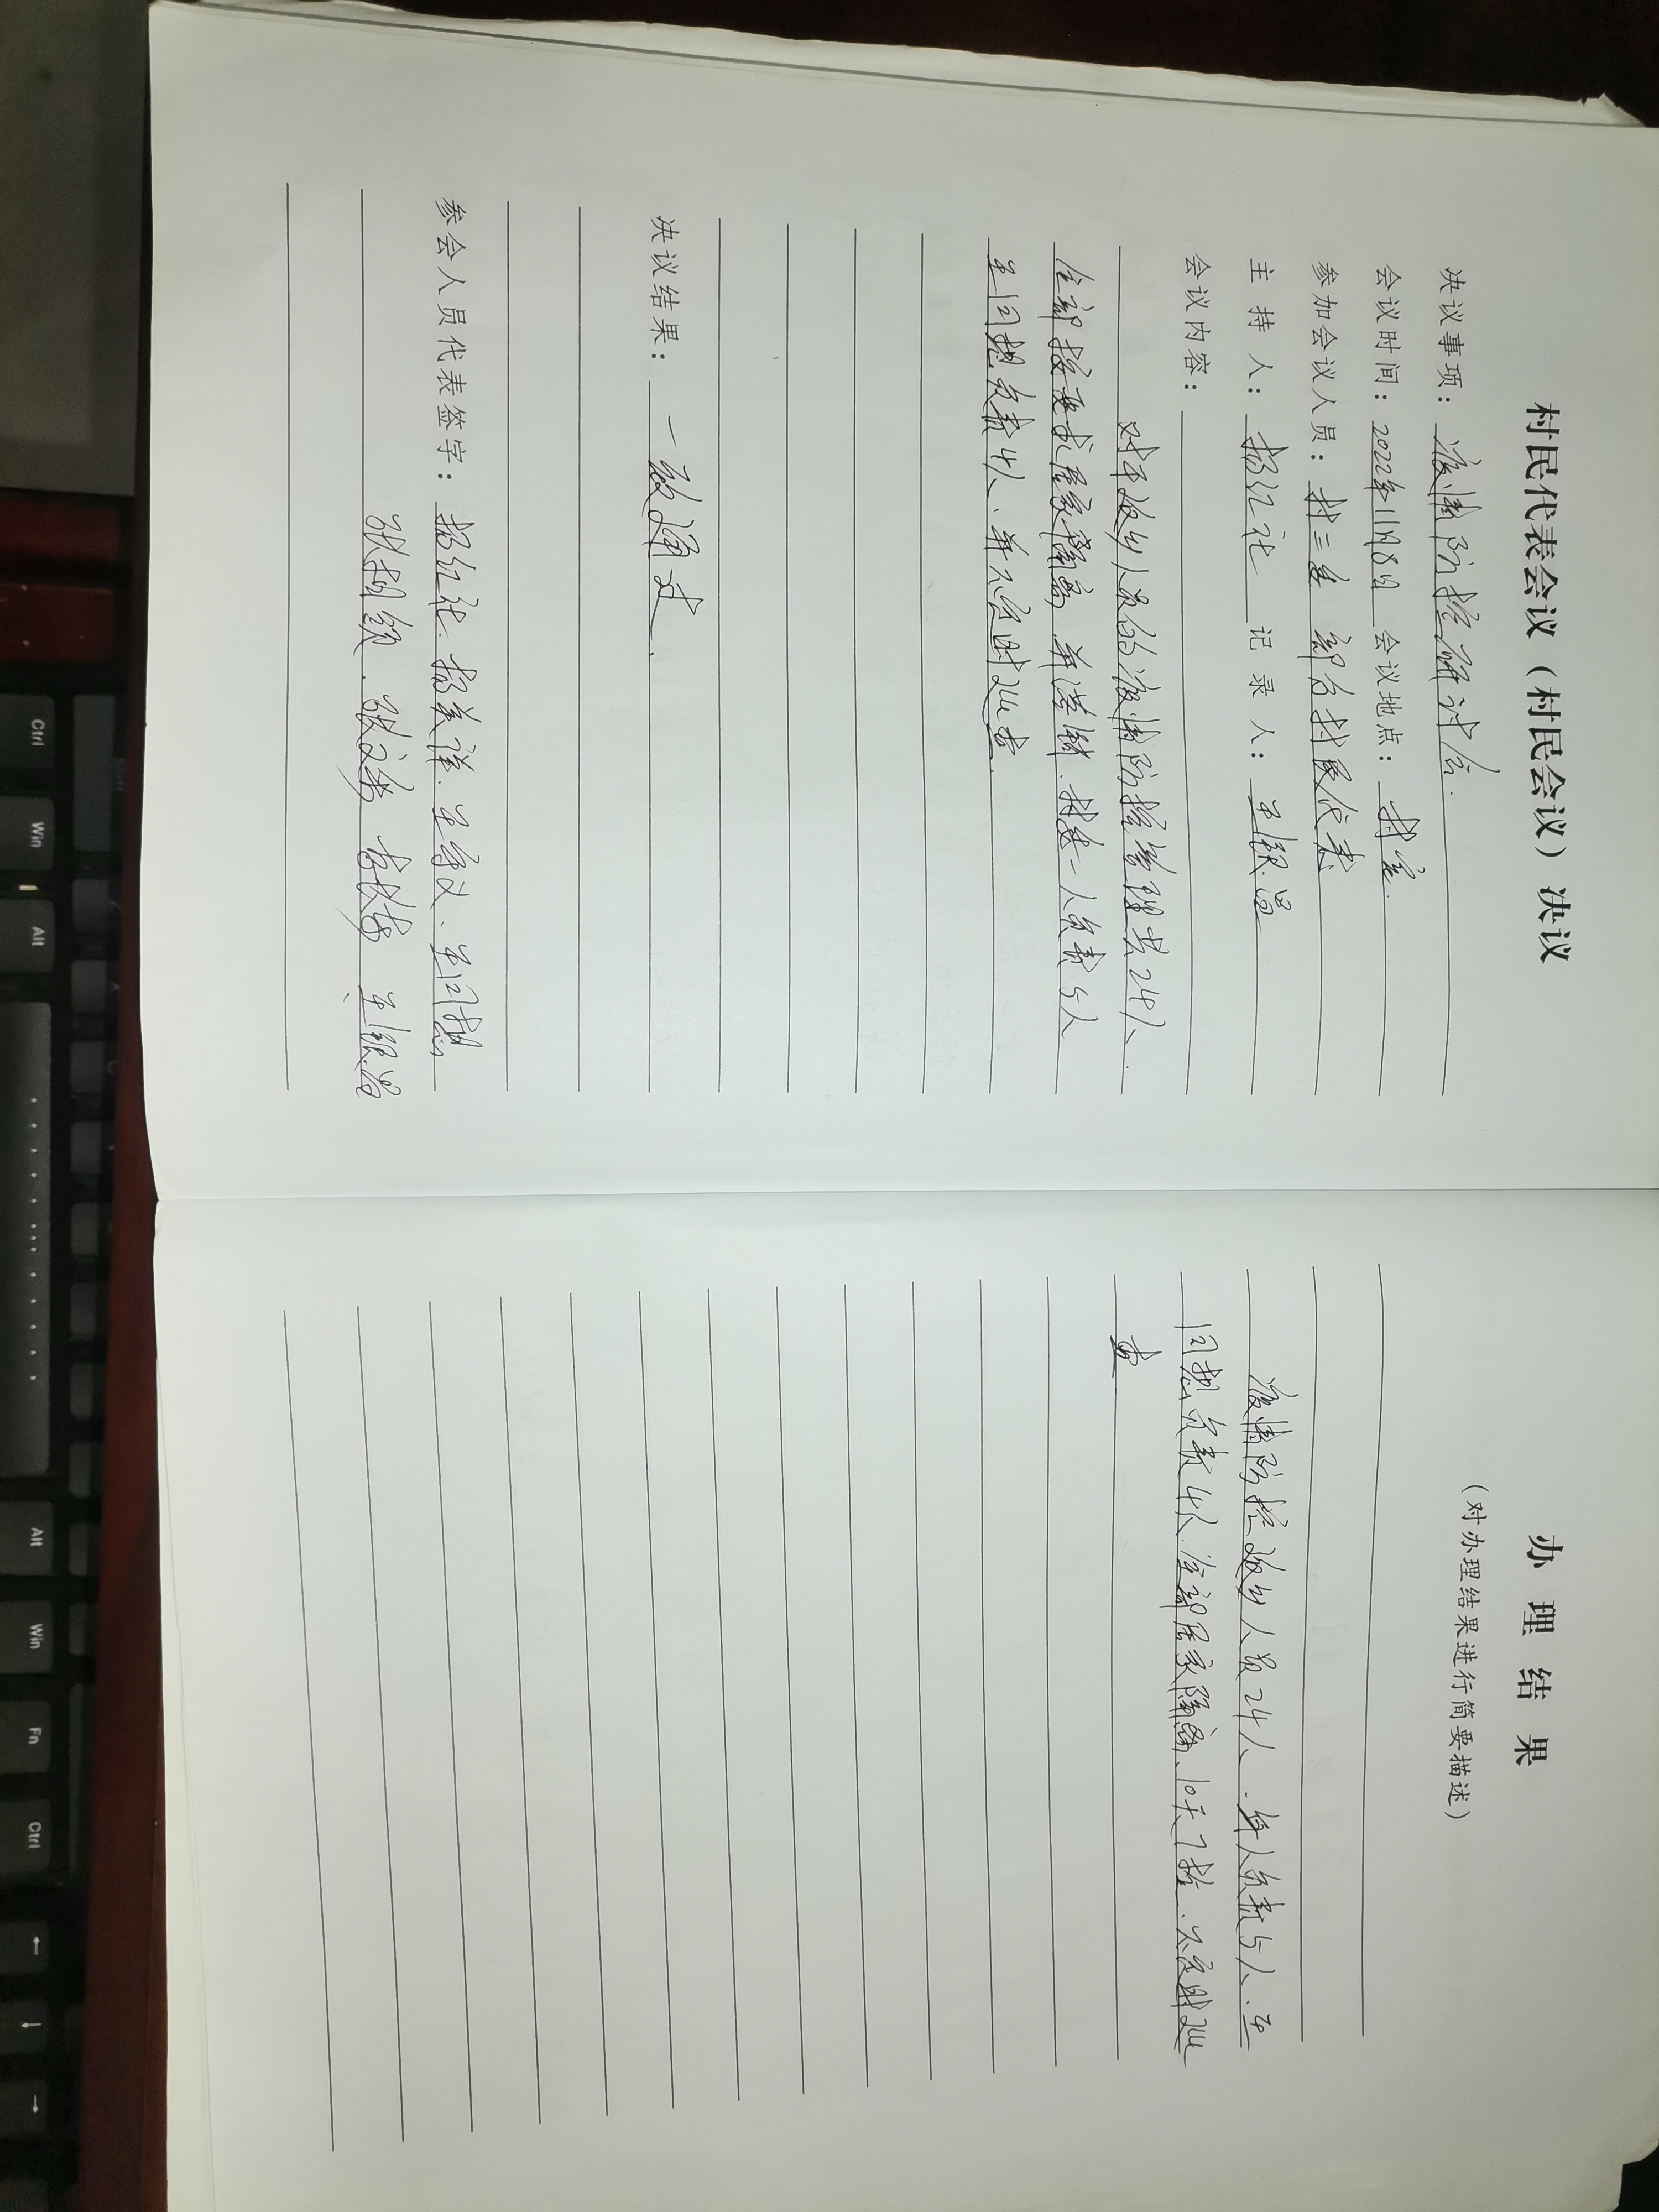 村民代表会议（村民会议）决议
决议事项：疫情防控研讨会.
会议时间：2022年11月8日 会议地点：村室.
参加会议人员：村三委 部分村民代表
主持人：杨红社 记录人：王银昌
会议内容：
对于返乡人员的疫情防控管理共24人.
全部按要求居家隔离.并落锁.村委一人负责5人
王同想负责4人.并不定时巡查.
决议结果：一致通过.
参会人员代表签字：杨红社.杨美详.王守义.王同想
张相领.张文 王银昌
办理结果
（对办理结果进行简要描述）
疫情防控返乡人员24人.每人负责5人.王
同想负责4人.全部居家隔离.10天7检.不定时巡
查.
Shift
Ctrl Win Alt Alt Win Fn Ctrl ← ↓ →